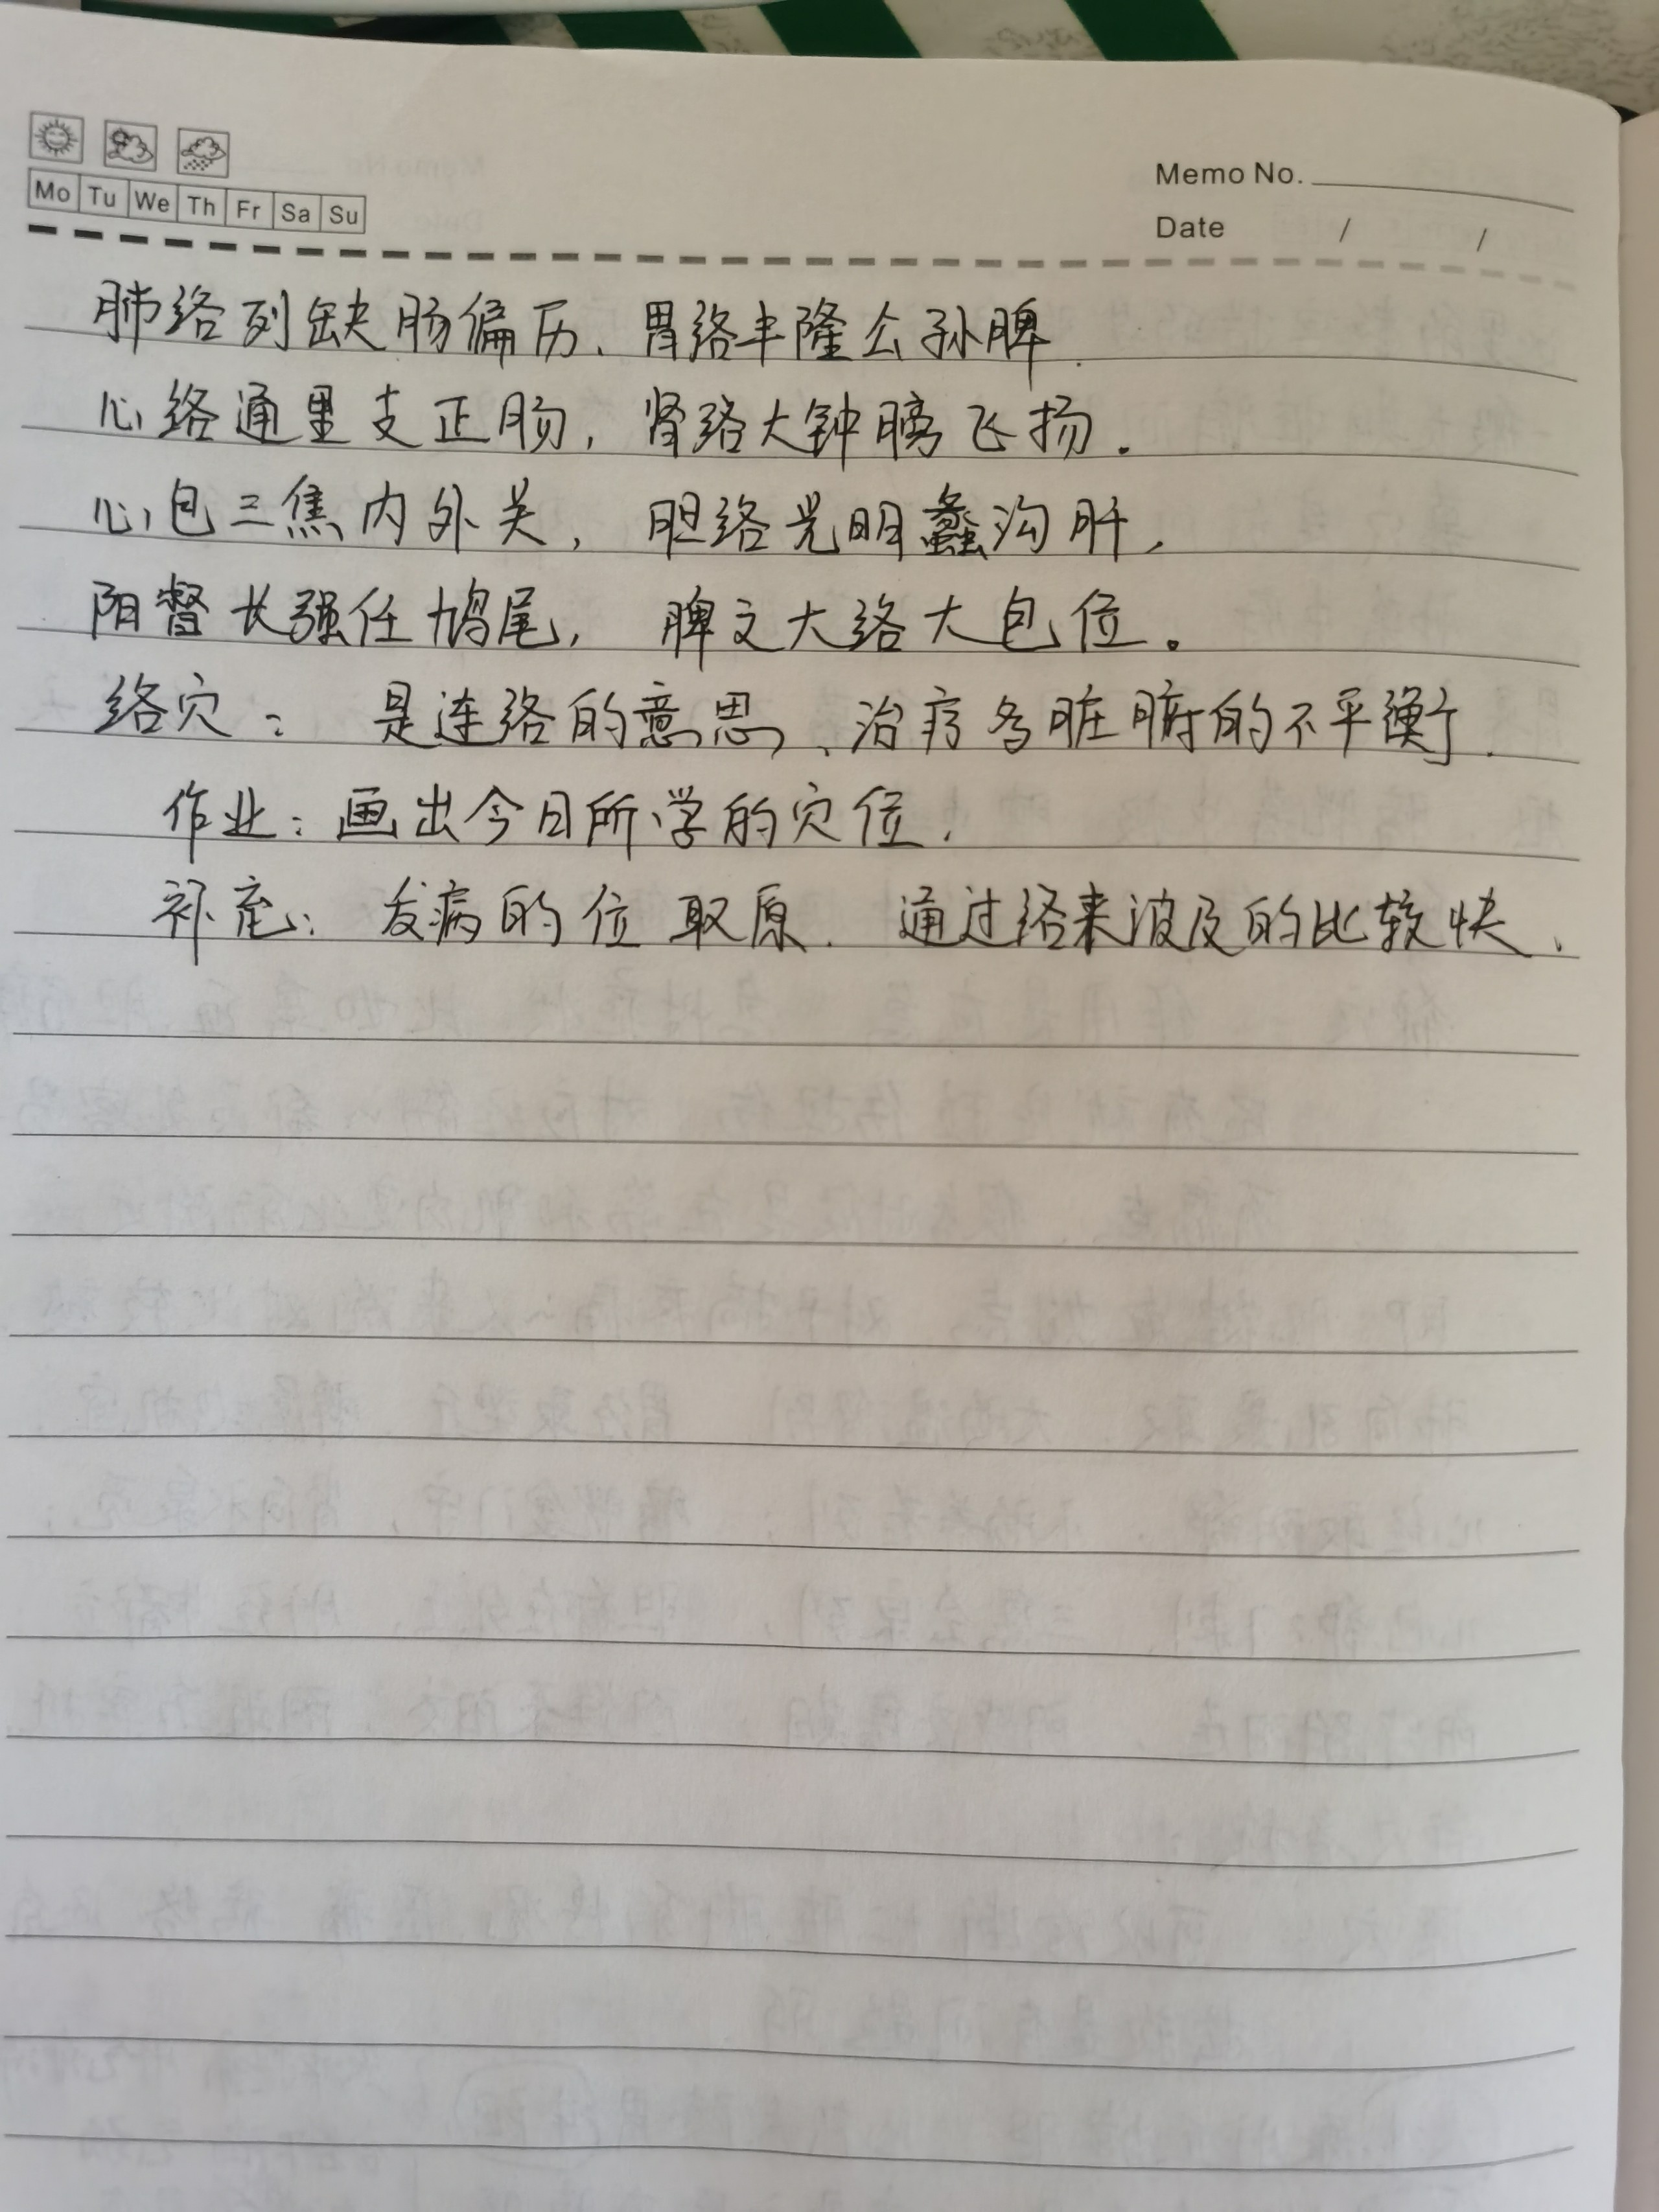 Mo Tu We Th Fr Sa Su
Memo No.
Date / /
肺络列缺肠偏历、胃络丰隆公孙脾.
心络通里支正肠，肾络大钟膀飞扬.
心包三焦内外关，胆络光明蠡沟肝，
阳督长强任鸠尾，脾之大络大包位。
络穴：是连络的意思、治疗各脏腑的不平衡.
作业：画出今日所学的穴位，
补充：发病的位取原. 通过络来波及的比较快、